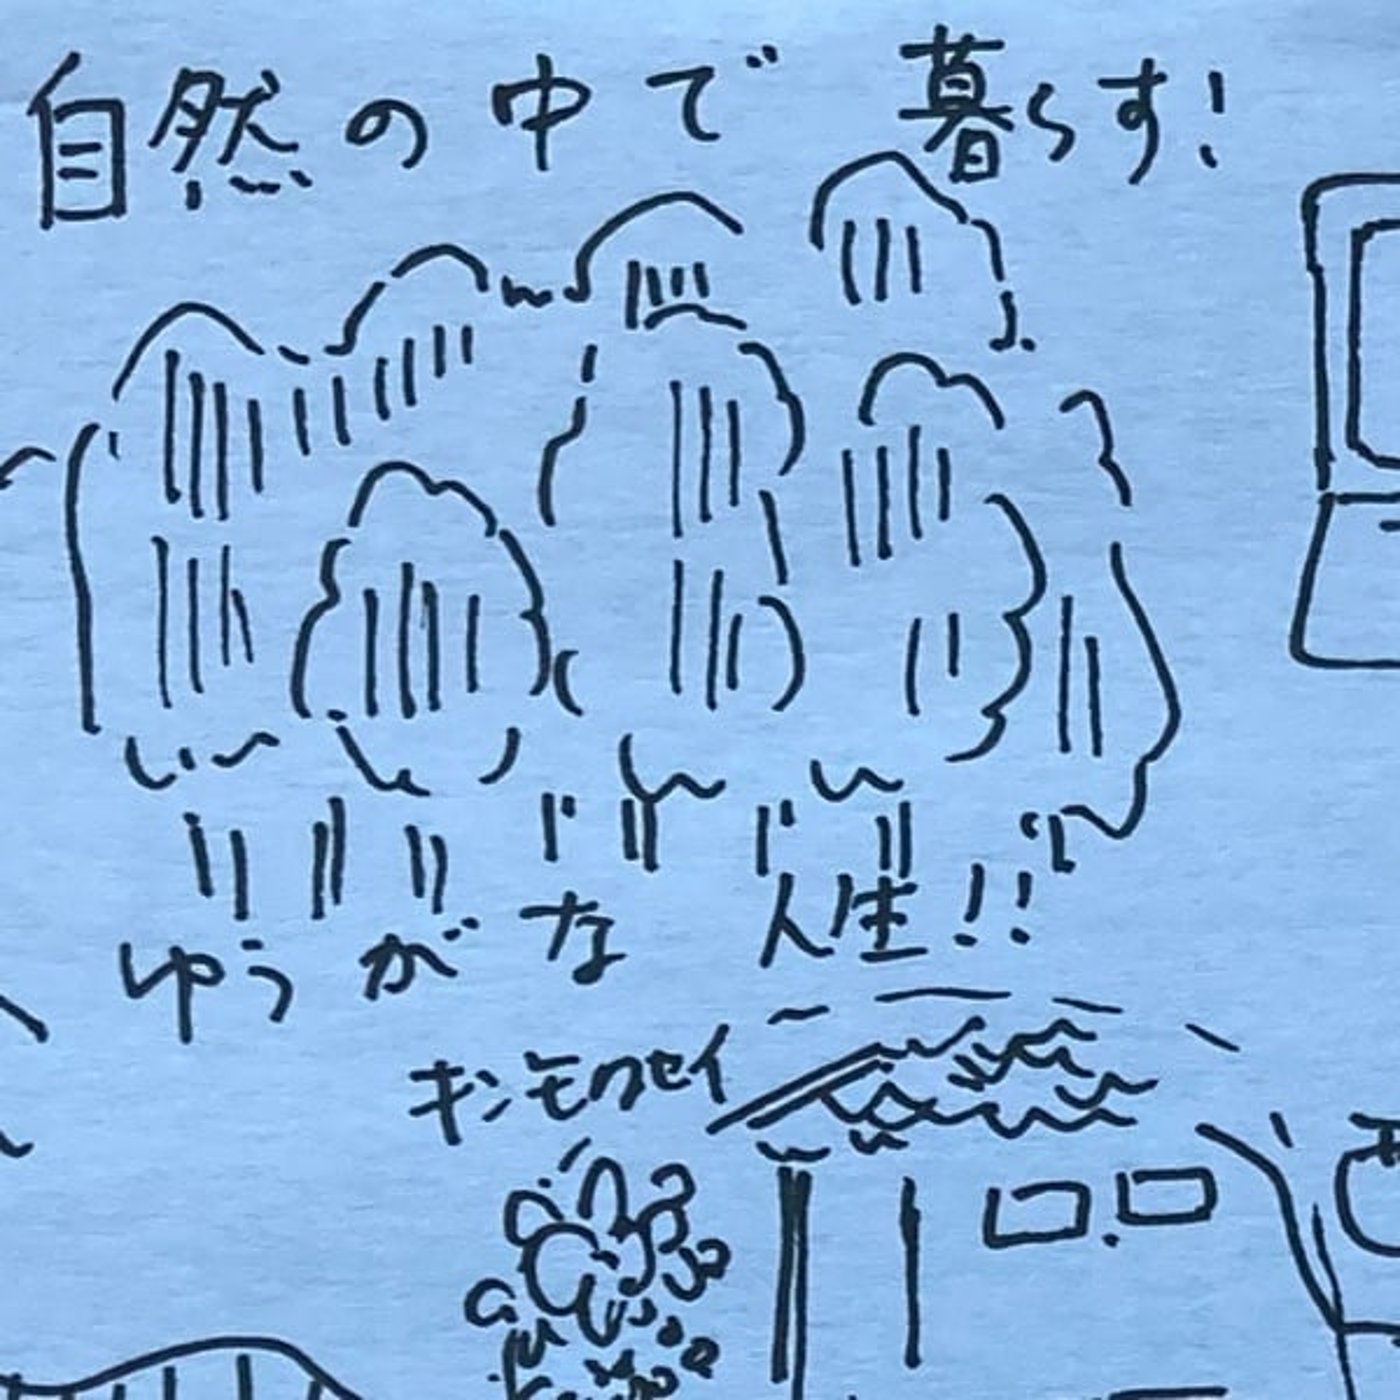 自然の中で 暮らす!
ゆうがな 人生!!
キンモクセイ